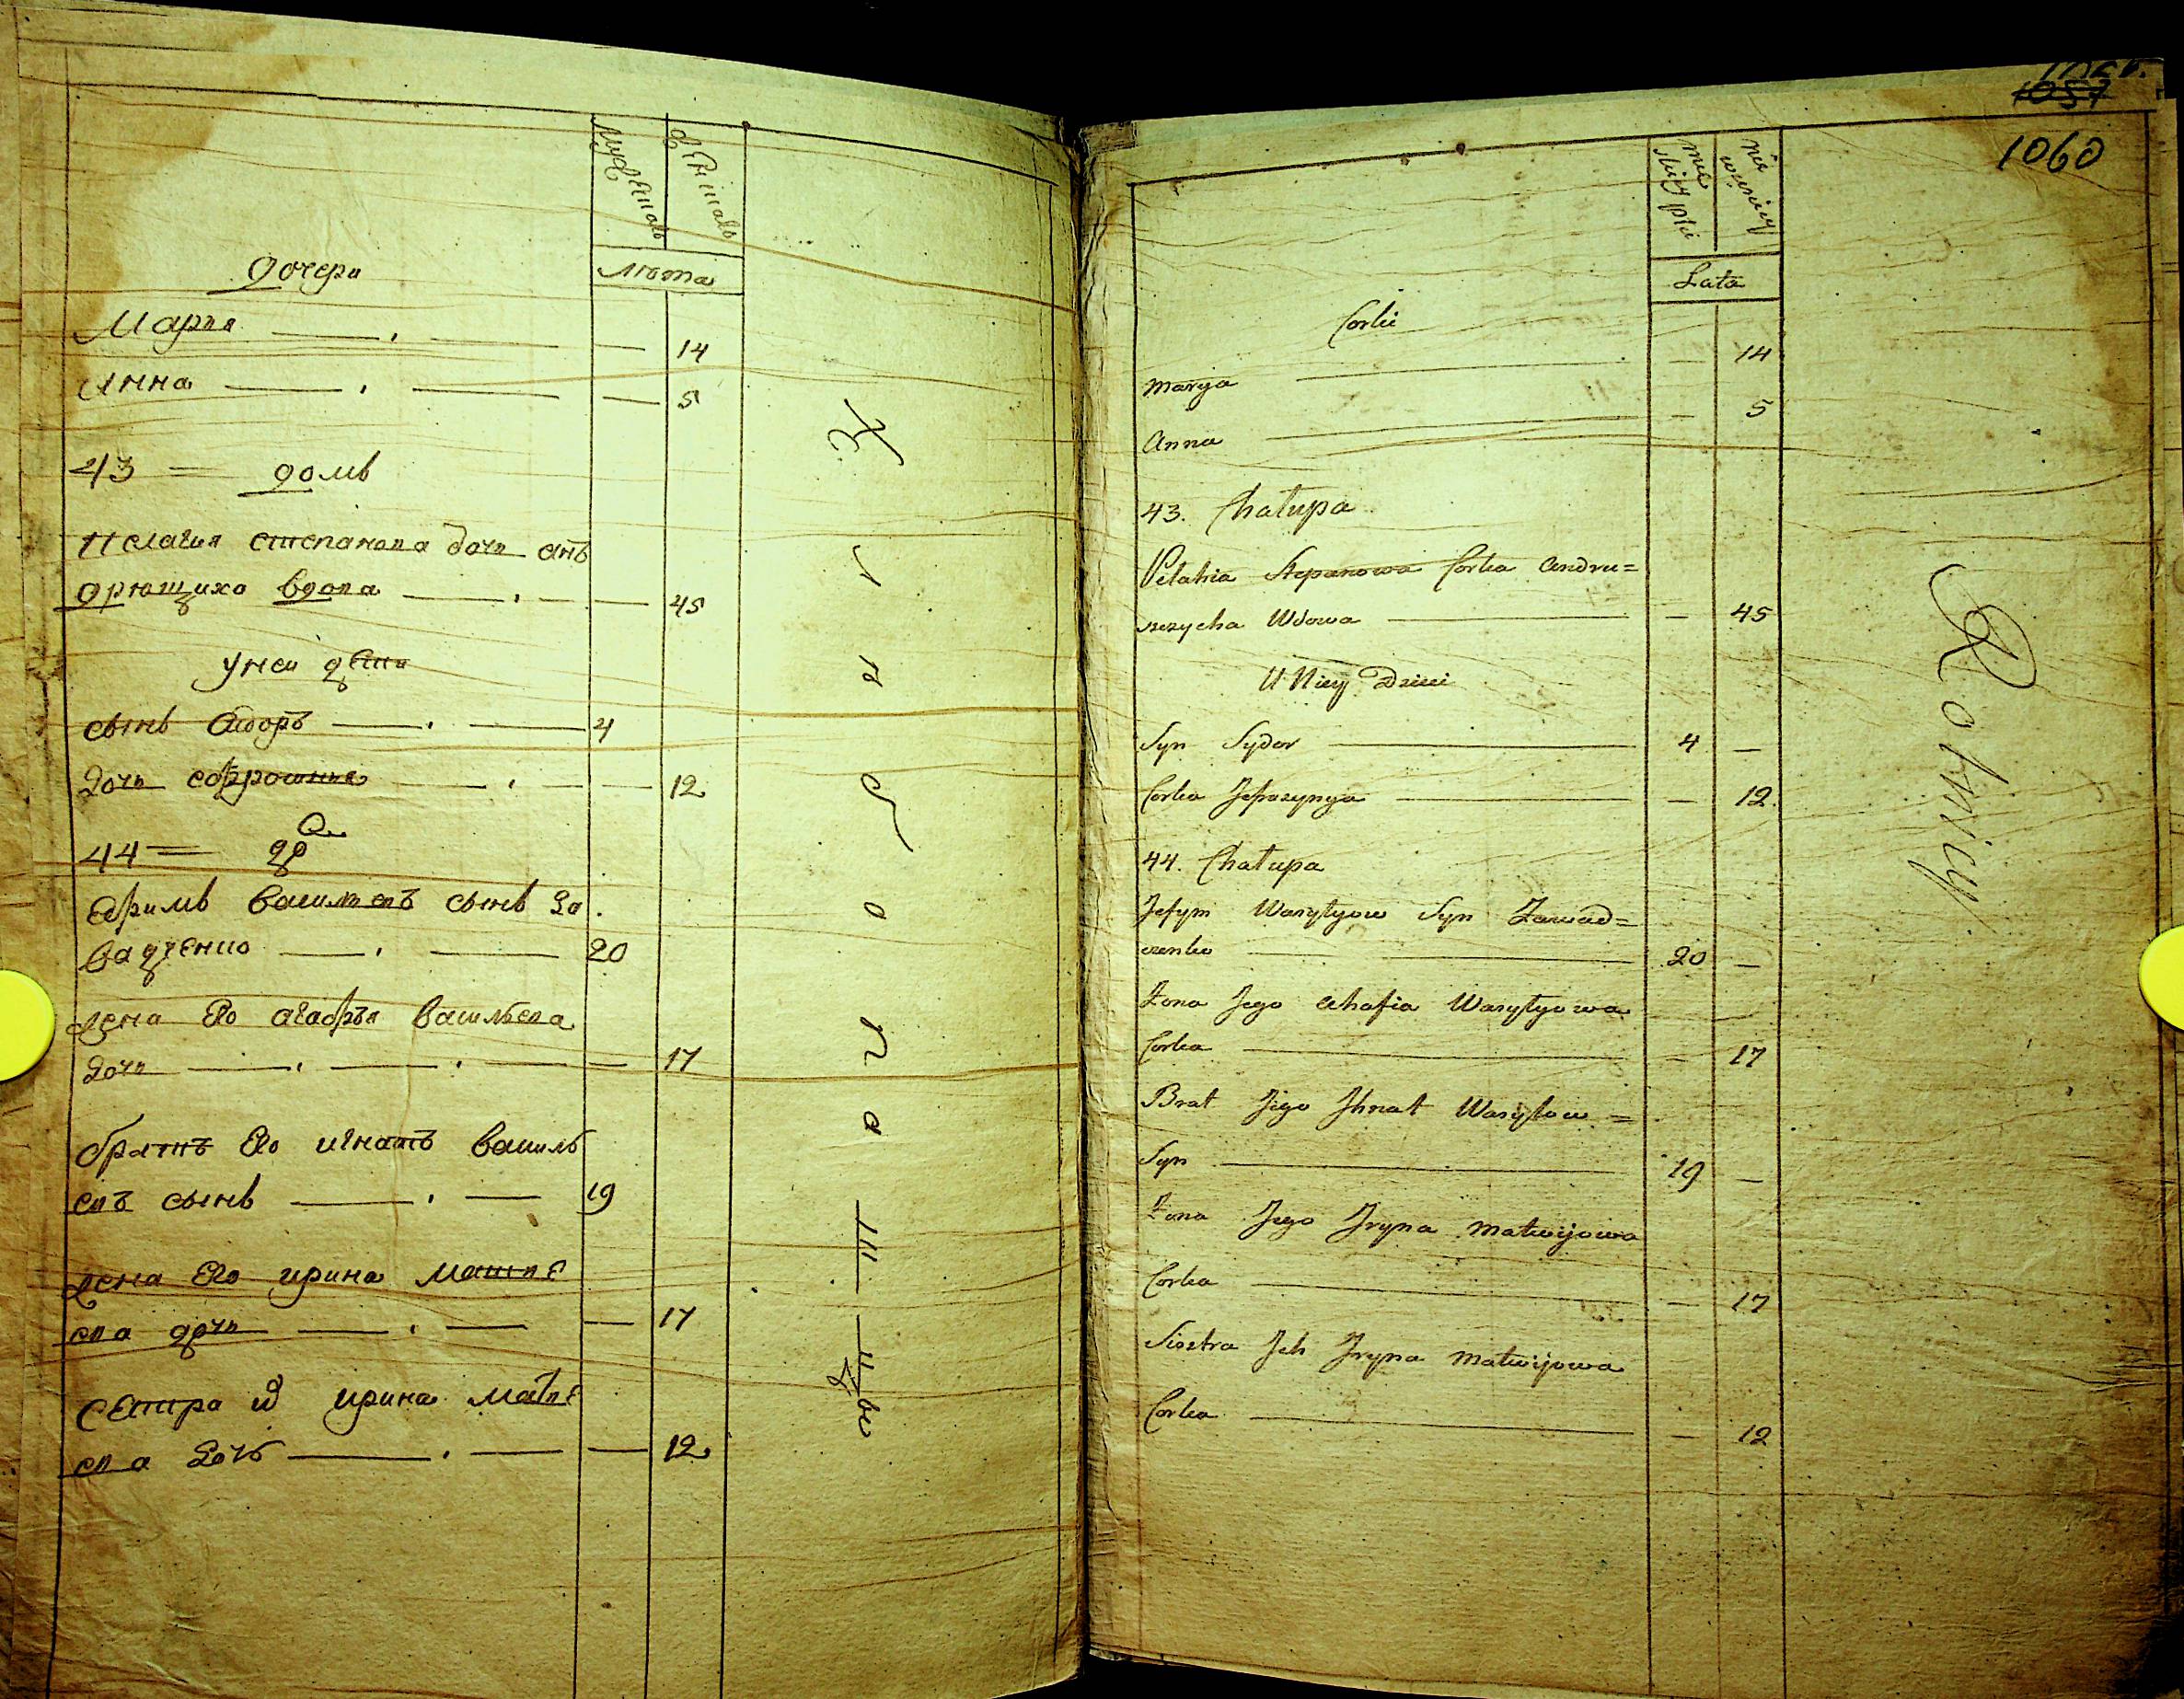 Мужеска
Женска
Лѣта
Дочери
Мария 14
Анна 5
43 = домъ
Пелагия степанова дочь ан
дрющиха вдова 45
у неи дети
сынъ Сидоръ 4
дочь ефросиния 12
44 = до
Ефимъ васильевъ сынъ за
вадченко 20
жена Его агафья васильева
дочь 17
братъ Его игнатъ василь
евъ сынъ 19
жена Его ирина матве
ева дочь 17
сестра их ирина матве
ева дочь 12
1057
1060
męz
kiey płci
Lata
Corki
Marya — 14
Anna — 5
43. Chałupa
Pelahia Stepanowa Corka Andru=
szczycha Wdowa — 45
U Niey Dzieci
Syn Sydor 4 —
Corka Jefrozynya — 12
44. Chałupa
Jefym Wasylyow Syn Zawad=
czenko 20 —
Żona Jego Ahafia Wasylyowa
Corka — 17
Brat Jego Jhnat Wasylow =
Syn 19 —
Żona Jego Jryna Matwijowa
Corka — 17
Siostra Jch Jryna Matwijowa
Corka — 12